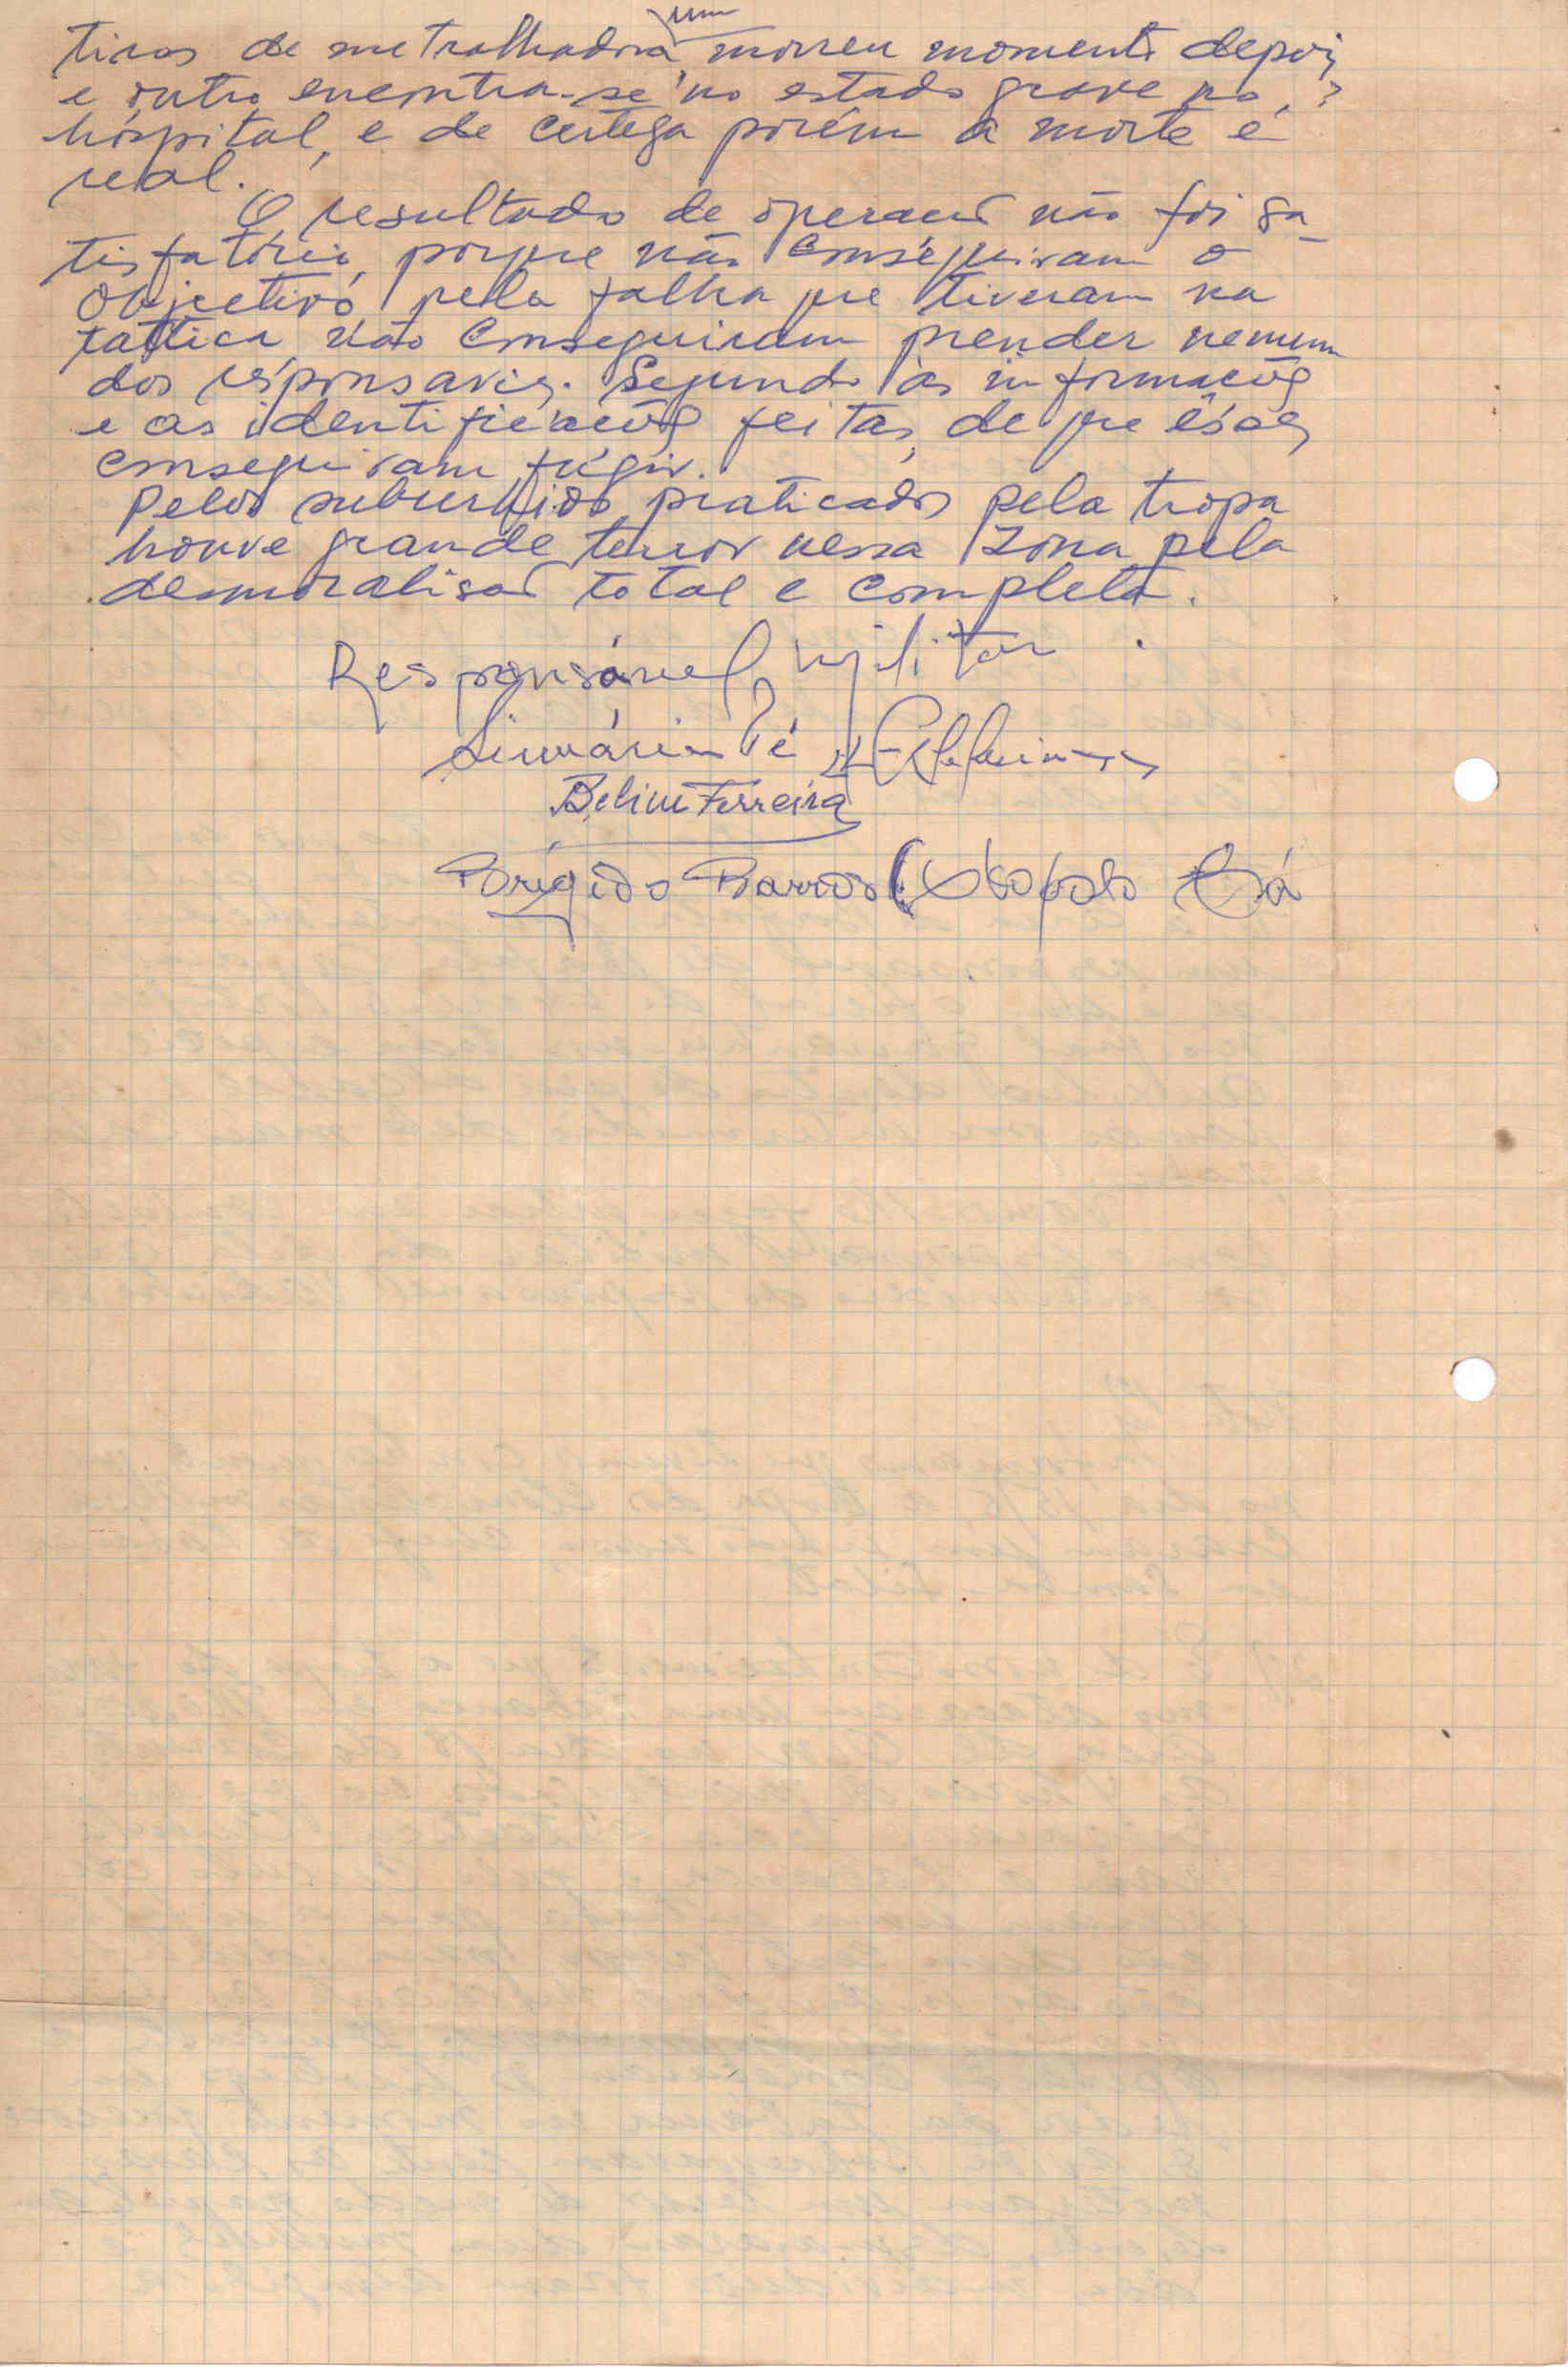 um
tiros de metralhadora morreu momento depois
e outro encontra-se no estado grave no
hospital, e de certeza porém a morte é
real.
O resultado de operacão não foi sa-
tisfatório, porque não conseguiram o
objectivo pela falha que tiveram na
tattica não conseguiram prender nemum
dos responsaveis. Segundo as informacões
e as identificacões feitas, de que êsses
conseguiram fugir.
Pelos praticados pela tropa
houve grande terror nessa zona pela
demoralisacão total e completa.
Responsável Militar
Belini Ferreira
Brígido Barros ( Bá